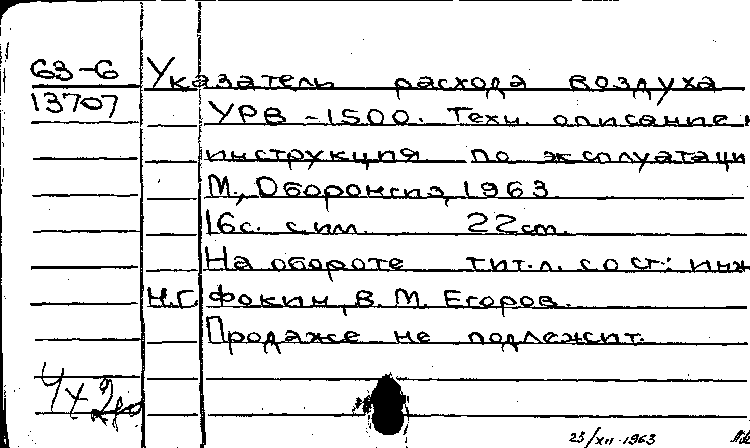 63-6 Указатель расхода воздуха
13707 УРВ-1500. Техн. описание и
инструкция по эксплуатаци
М., Оборонгиз, 1963
16с. с ил. 22 см.
На обороте тит. л. сост.: инж
Н.Г. Фокин, В. М. Егоров.
Продаже не подлежит.
23/XII-1963